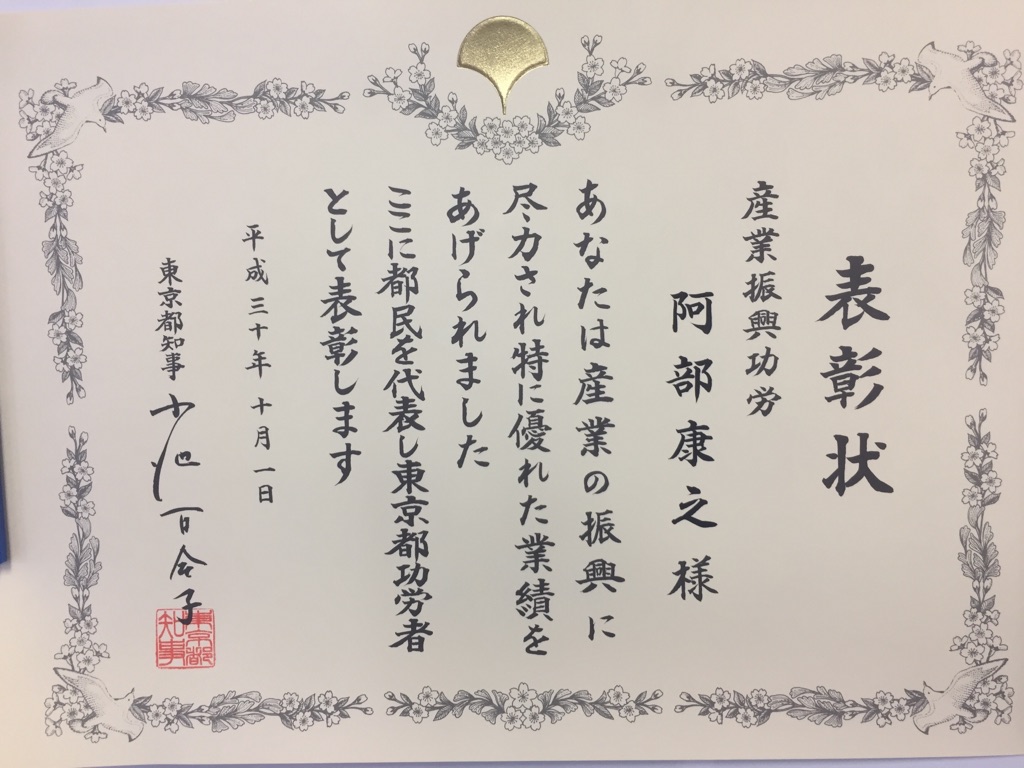 表彰状
産業振興功労
阿部康之様
あなたは産業の振興に
尽力され特に優れた業績を
あげられました
ここに都民を代表し東京都功労者
として表彰します
平成三十年十月一日
東京都知事 小池百合子
東京都知事